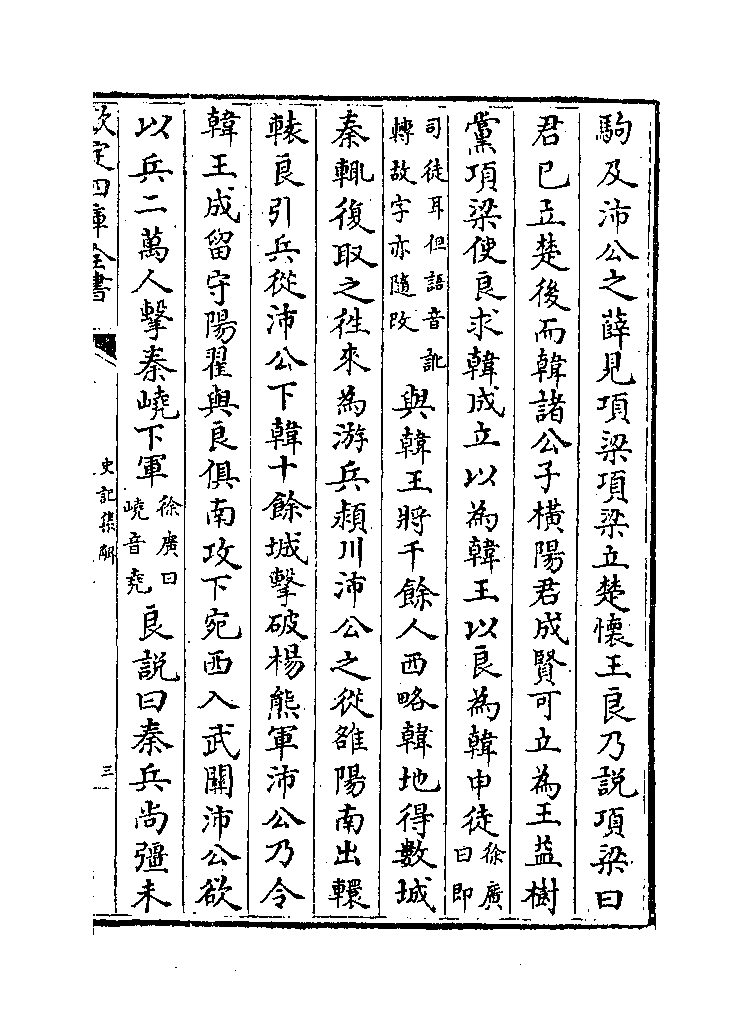 駒及沛公之薛見項梁項梁立楚懷王良乃説項梁曰
君已立楚後而韓諸公子橫陽君成賢可立為王益樹
黨項梁使良求韓成立以為韓王以良為韓申徒徐廣曰即
司徒耳但語音訛轉故字亦隨改與韓王將千餘人西略韓地得數城
秦輒復取之徃來為游兵潁川沛公之從雒陽南出轘
轅良引兵從沛公下韓十餘城擊破楊熊軍沛公乃令
韓王成留守陽翟與良俱南攻下宛西入武關沛公欲
以兵二萬人擊秦嶢下軍徐廣曰嶢音堯良説曰秦兵尚彊未
欽定四庫全書
史記集解
三